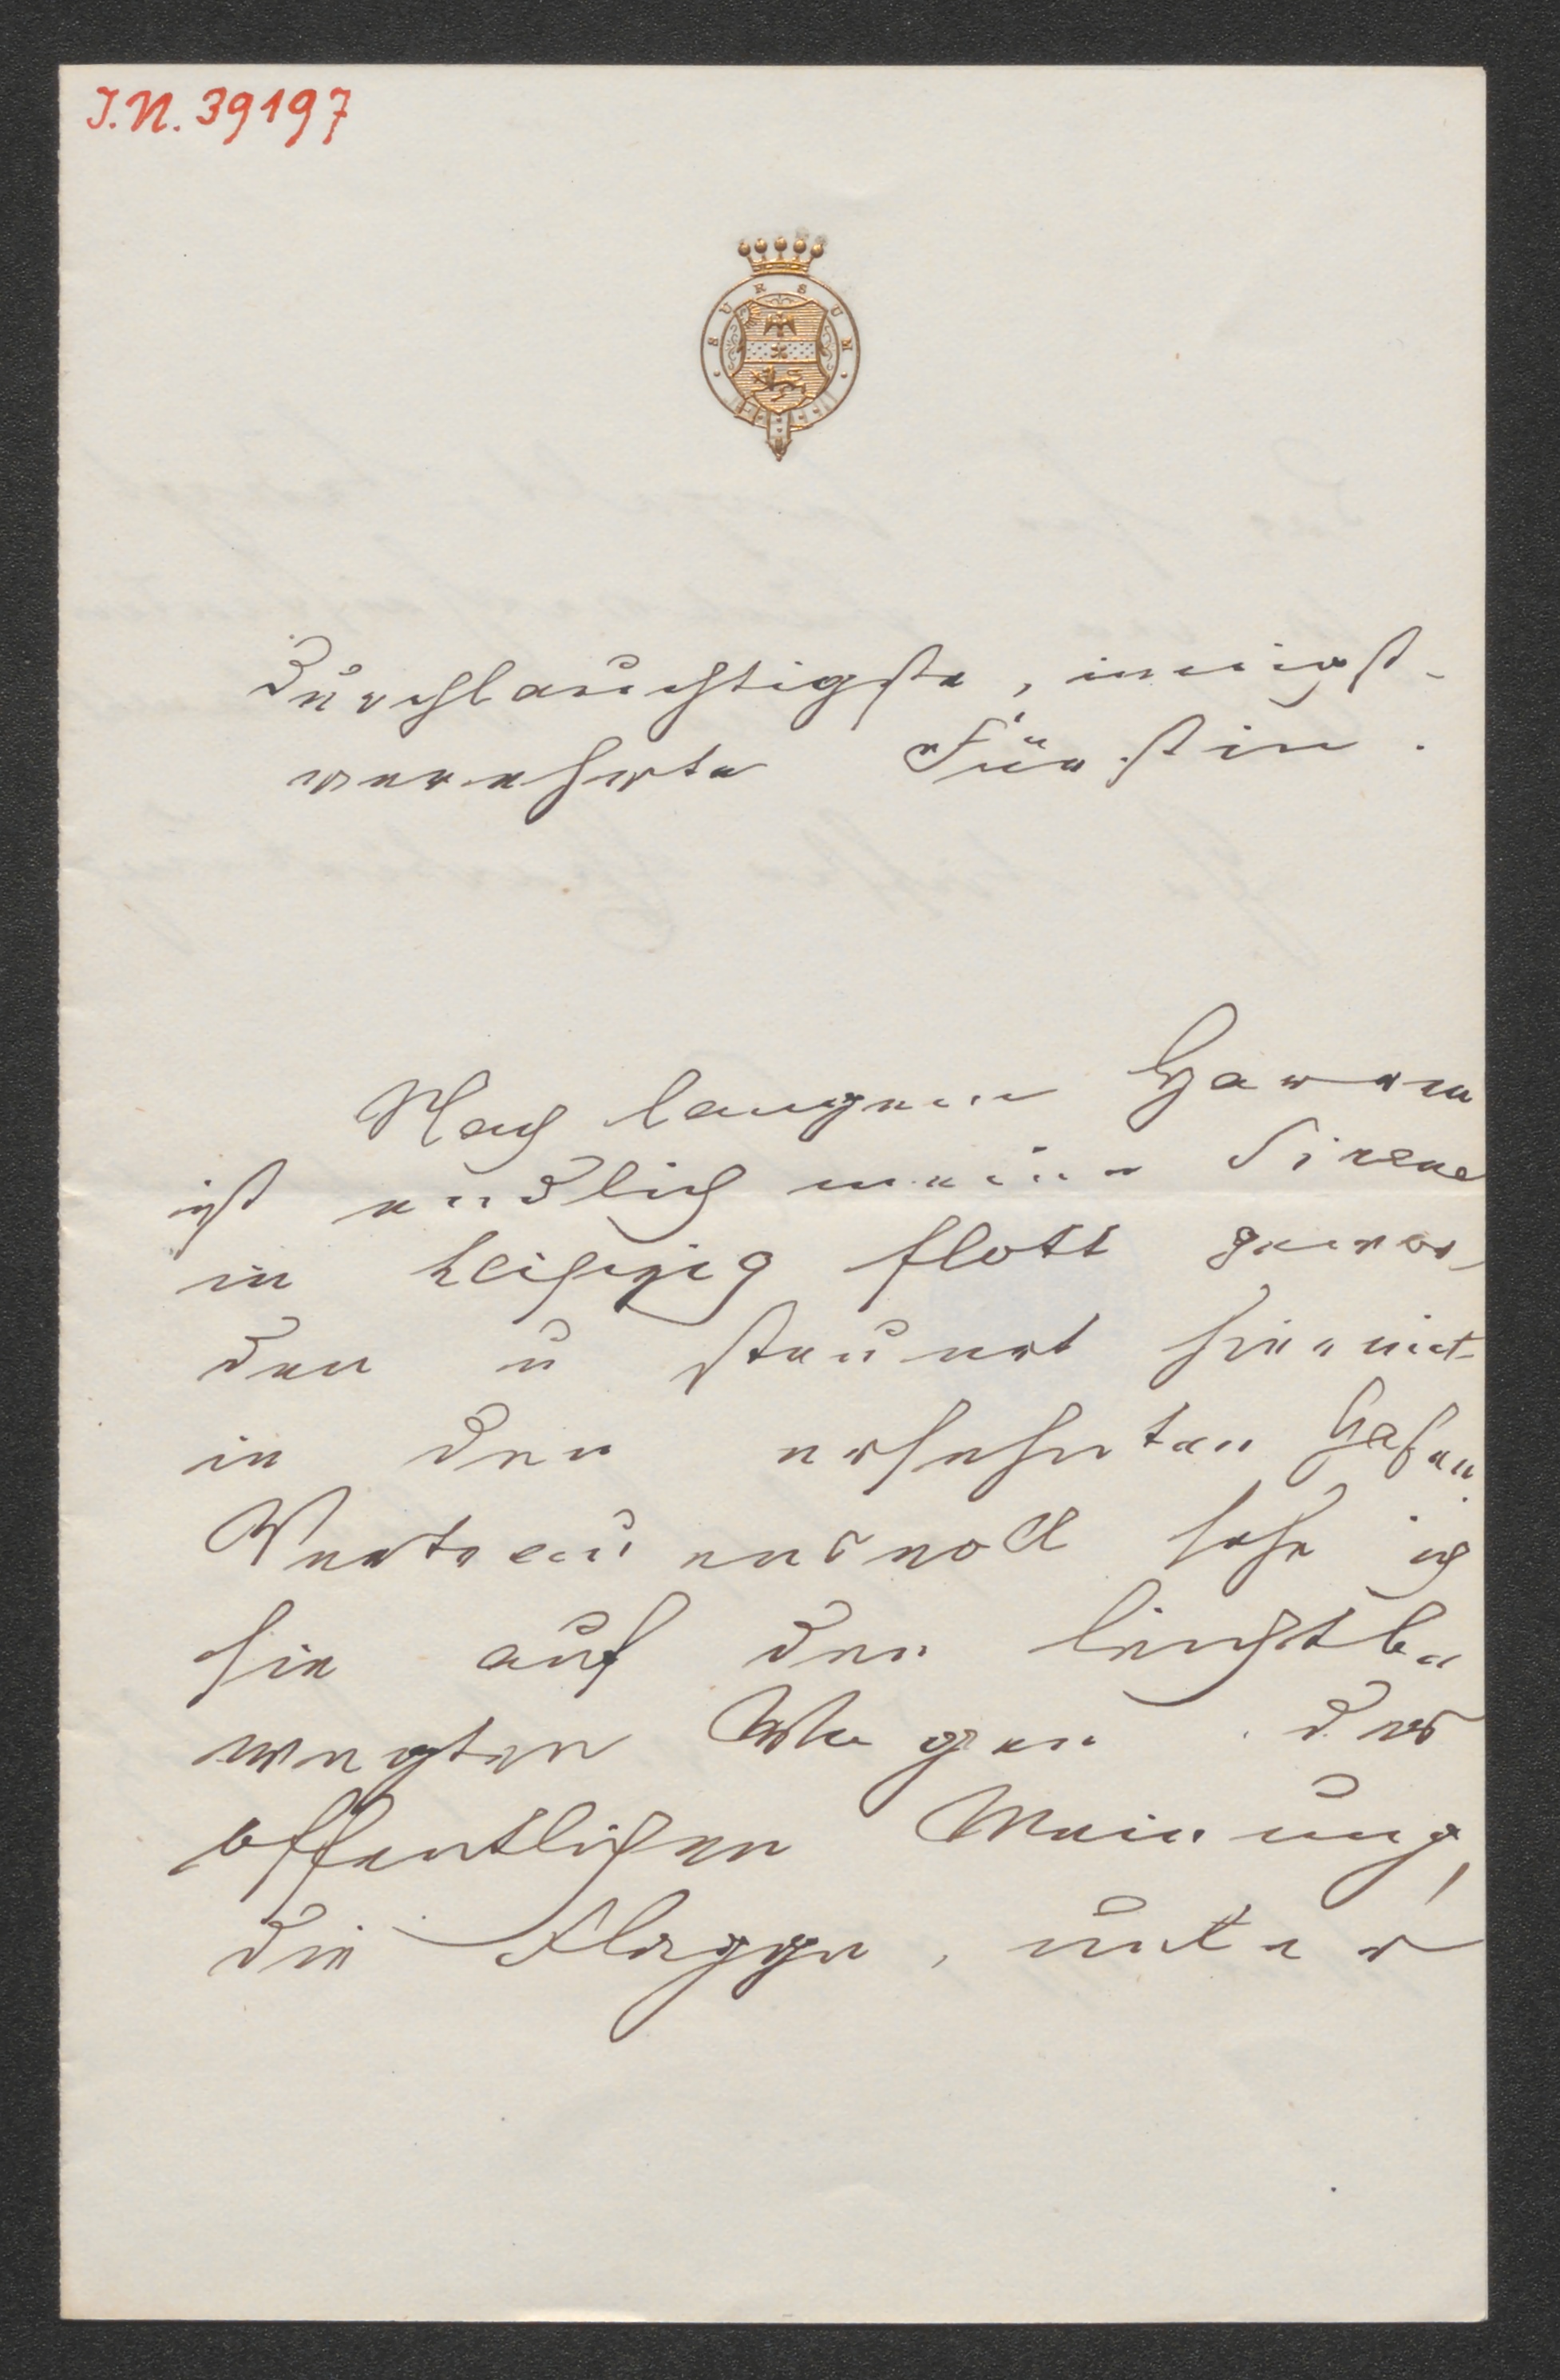 I.N. 39197
SURSUM
Durchlauchtigste, innigst-
verehrte Fürstin.
Nach langem Harren
ist endlich meine Sirene
in Leipzig flott gewor-
den u steuert hiermit
in den ersehnten Hafen.
Vertrauensvoll sehe ich
sie auf den leichtbe
wegten Wogen der
öffentlichen Meinung,
die Flagge, unter